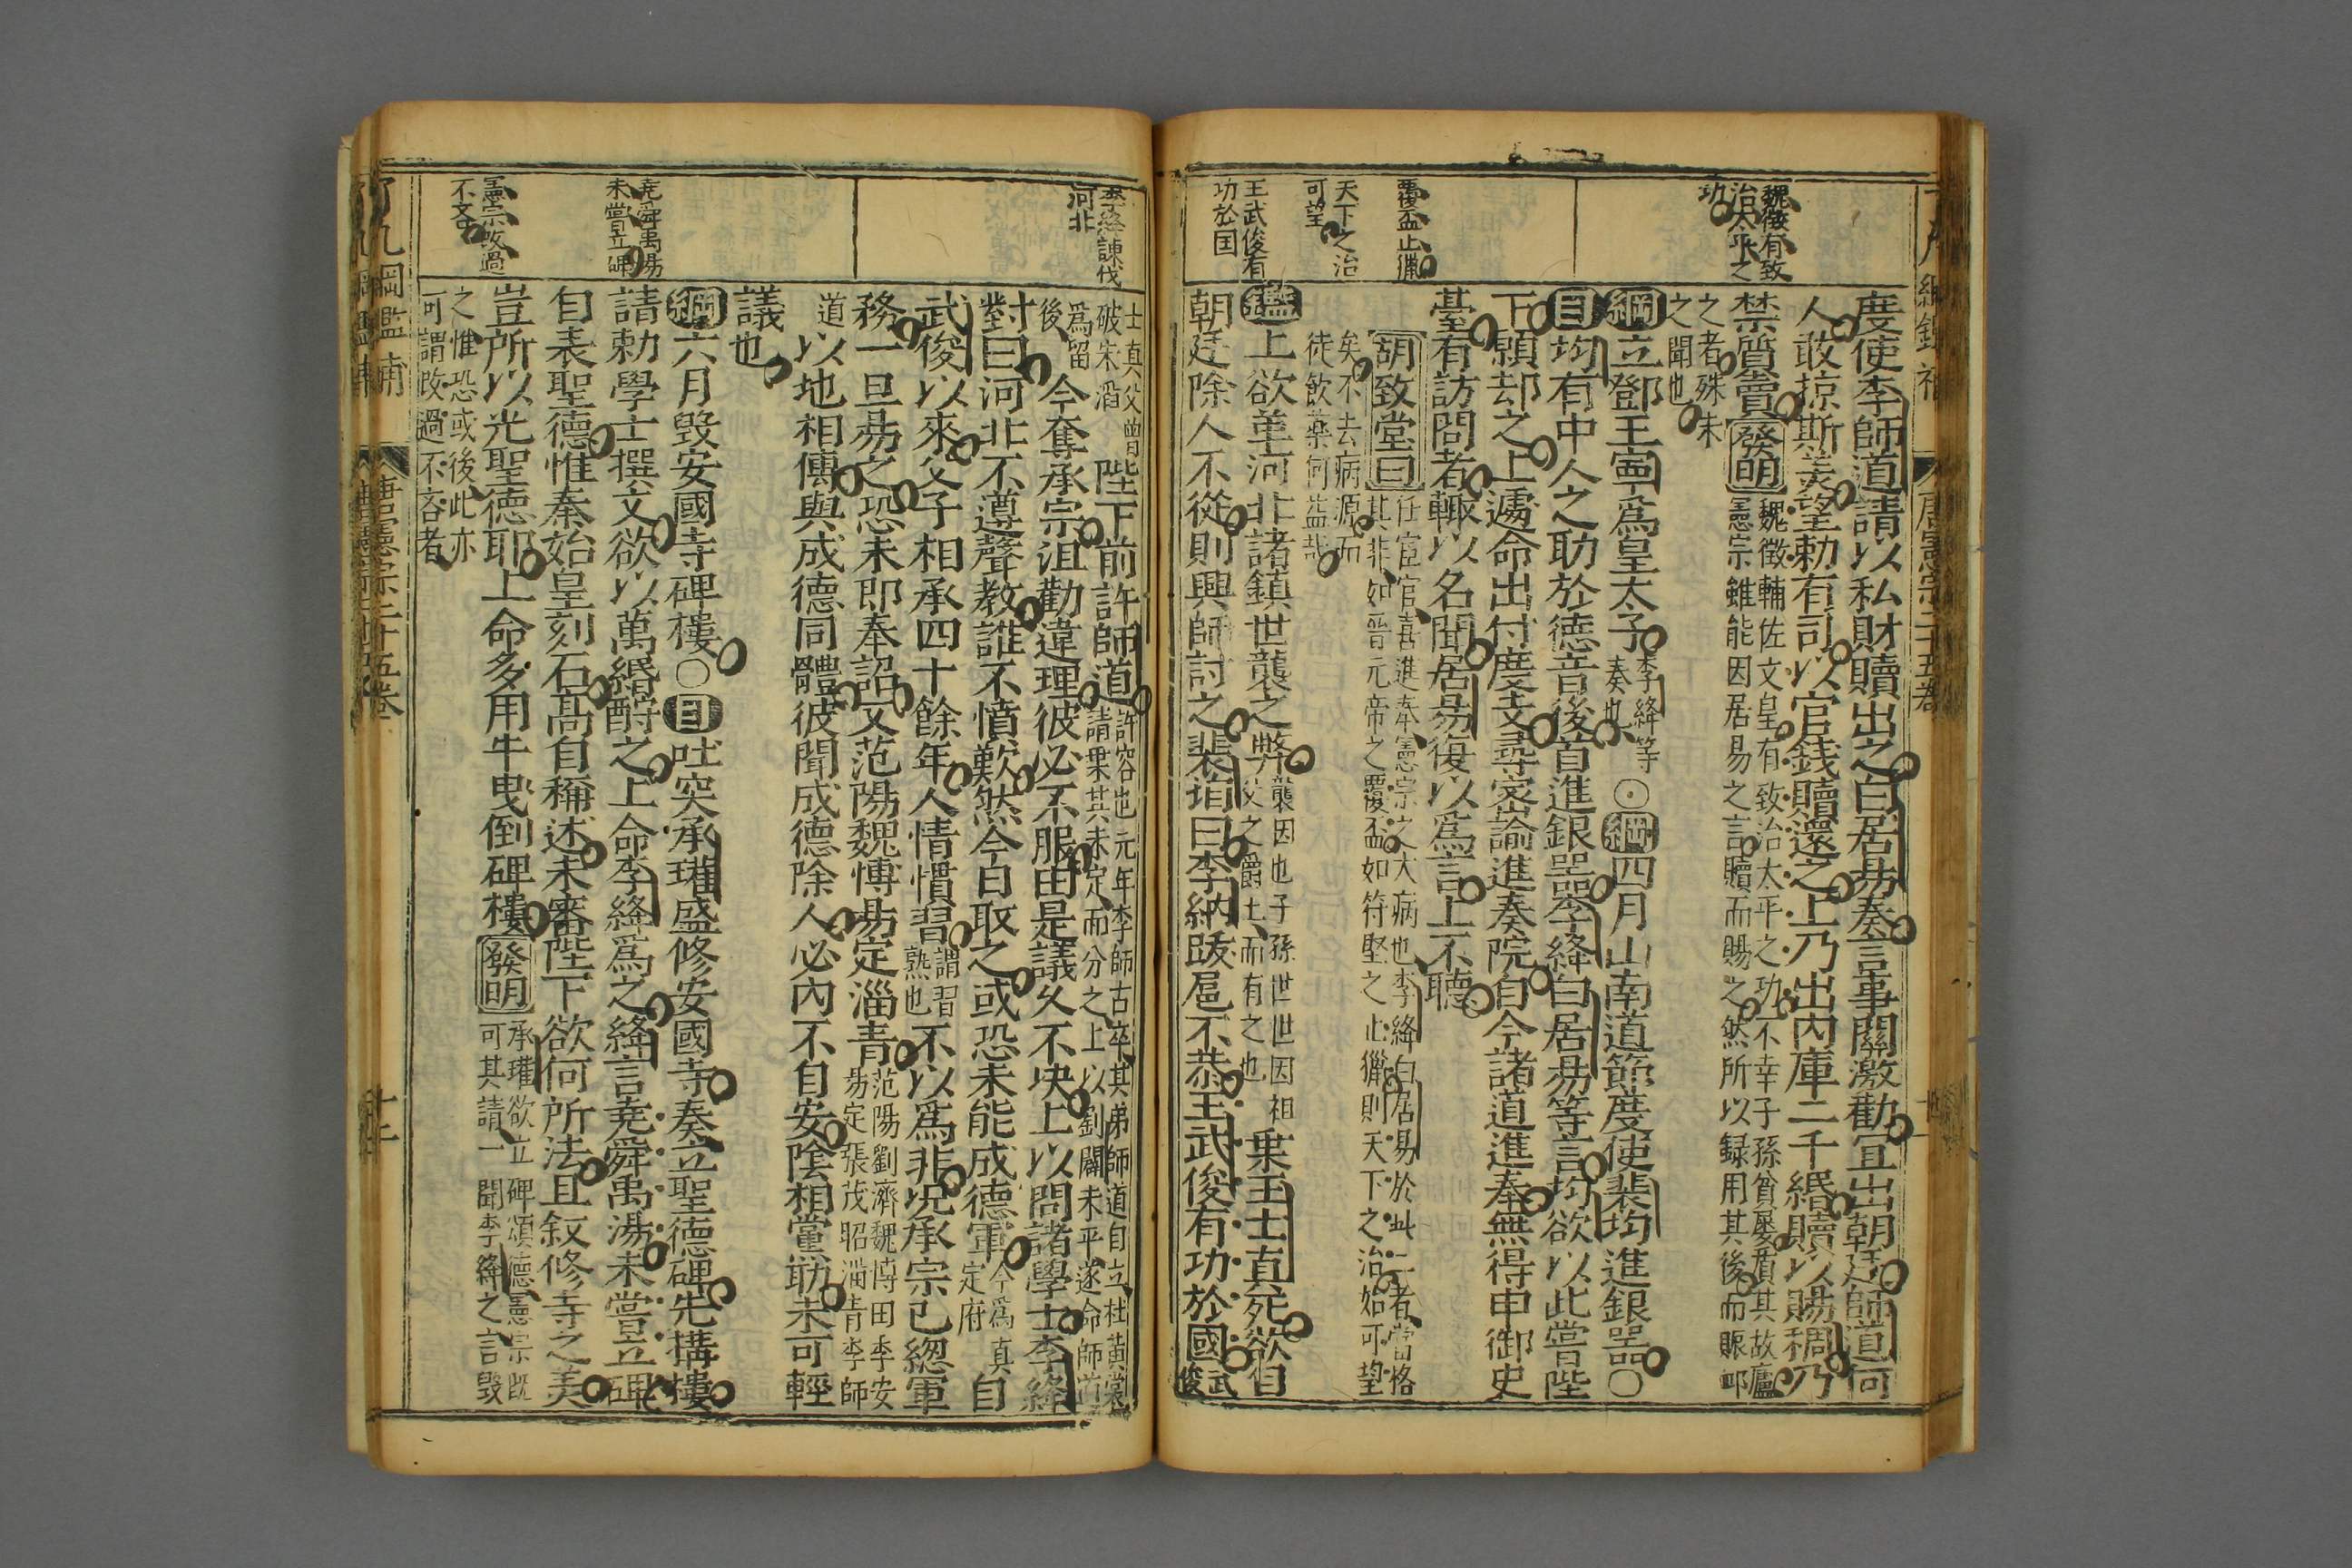 魏徵有致
治太平之
功
覆盃止獵
天下之治
可望
王武俊有
功於囯
度使李師道請以私財贖出之白居昜奏言事關激勸宜出朝廷師道何
人敢掠斯美望勅有司以官錢贖還之上乃出內庫二千緡贖以賜稠乃
禁質賣發明魏徵輔佐文皇有致治太平之功不幸子孫貧屢質其故廬
憲宗雖能因居易之言贖而賜之然所以録用其後而賑䘏
之者殊未
之聞也
綱立鄧王寧爲皇太子李絳等
奏也⊙綱四月山南道節度使裴均進銀噐○
目均有中人之助於德音後首進銀噐李絳白居昜等言均欲以此嘗陛
下願却之上遽命出付度支尋密諭進奏院自今諸道進奉無得申御史
臺有訪問者輒以名聞居昜復以爲言上不聽
胡致堂曰任宦官喜進奉憲宗之大病也李絳白居易於此二者當格
其非如晉元帝之覆盃如符堅之止獵則天下之治始可望
矣不去病源而
徒飲藥何益哉
鑑上欲革河北諸鎮世襲之弊襲因也子孫世世因祖
父之爵土而有之也乗王士真死欲自
朝廷除人不從則興師討之裴垍曰李納跋扈不恭王武俊有功於國武
俊
李絳諫伐
河北
堯舜禹湯
未嘗立碑
憲宗改過
不吝
士真父曽
破朱滔陛下前許師道許容也元年李師古卒其弟師道自立杜黄裳
爲留請乗其未定而分之上以劉闢未平遂命師道
後今奪承宗沮勸違理彼必不服由是議久不决上以問諸學士李絳
對曰河北不遵聲教誰不憤歎然今日取之或恐未能成德軍今爲真
定府自
武俊以來父子相承四十餘年人情慣習謂習
熟也不以爲非况承宗已緫軍
務一旦昜之恐未即奉詔又范陽魏博昜定淄青范陽劉濟魏博田季安
昜定張茂昭淄青李師
道以地相傳與成德同體彼聞成德除人必內不自安陰相黨助未可輕
議也
綱六月毀安國寺碑樓○目吐突承璀盛修安國寺奏立聖德碑先搆樓
請勅學士撰文欲以萬緡酧之上命李絳爲之絳言堯舜禹湯未嘗立碑
自表聖德惟秦始皇刻石髙自稱述未審陛下欲何所法且叙修寺之美
豈所以光聖德耶上命多用牛曳倒碑樓發明承璀欲立碑頌德憲宗既
可其請一聞李絳之言毀
之惟恐或後此亦
可謂改過不吝者
唐憲宗二十五卷